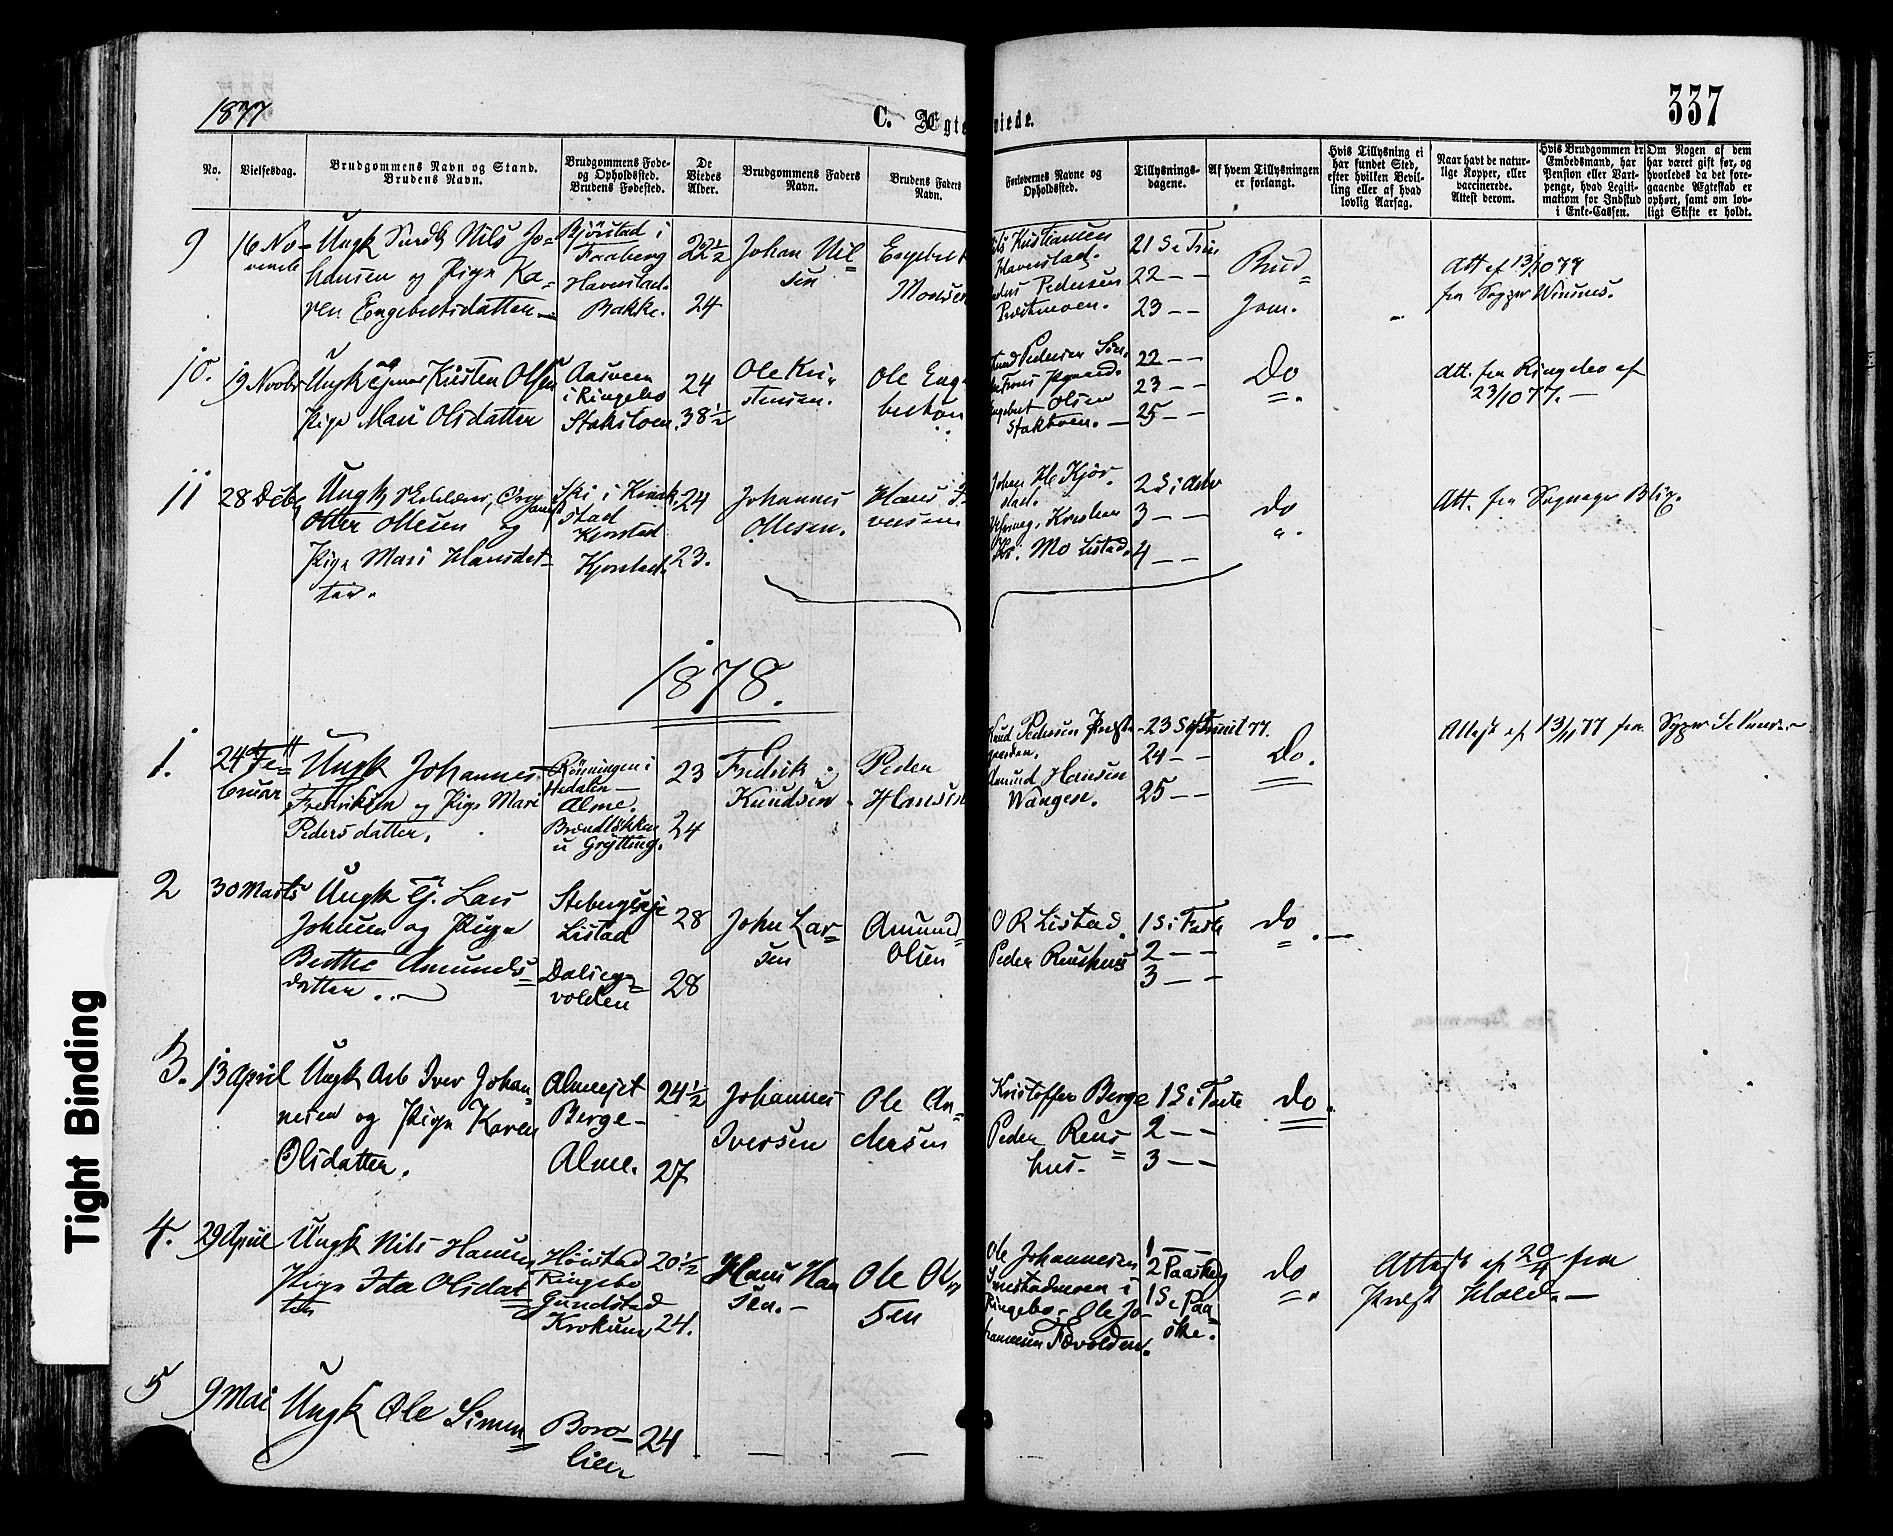 1877
C. Ægteviede.
337
No.
Vielsesdag.
Brudgommens Navn og Stand.
Brudens Navn.
Brudgommens Føde-
og Opholdssted.
Brudens Fødested.
De
Viedes
Alder.
Brudgommens Faders
Navn.
Brudens Faders
Navn.
Forlovernes Navne og
Opholdssted.
Tillysnings-
dagene.
Af hvem Tillysningen
er forlangt.
Hvis Tillysning ei
har fundet Sted,
efter hvilken Bevil-
ling eller af hvad
lovlig Aarsag.
Naar havt de natur-
lige Kopper, eller
vaccinerede.
Attest derom.
Hvis Brudgommen er
Embedsmand, har
Pension eller Vart-
penge, hvad Legiti-
mation for Indskud
i Enke-Cassen.
Om Nogen af dem
har været gift før, og
hvorledes da det fore-
gaaende Ægteskab er
ophørt, samt om lov-
ligt Skifte er holdt.
9
16 No-
vembr
Ungk Nils Jo-
hansen og Pige Ka-
ren Engebretsdatter
Bjørstad i
Faaberg
Haverstad.
Bakke.
22 1/2
24
Johan Nil-
sen
Engebret
Monsen
Nils Kristiansen
Haverstad.
Peder Pedersen
Præstmoen.
21 S e Trin
22 — —
23 — —
Brud-
gom.
Att af 13/10 77
fra Sogpr
10.
19 Novbr
Ungk Kristen Olsen
Pige Mari Olsdatter
Aasveen
i Ringebo
Stakstoen.
24
38 1/2
Ole Kri-
stensen.
Ole Enge-
Pedersen
Engebret Olsen
Stakstoen.
22 — —
23 — —
25 — —
Do
Att. fra Ringebo af
23/10 77. —
11
28 Debr
Ungk
Otter Ottesen og
Pige Mari Hansdat-
ter.
Ski i
stad
Kjorstad
Kjorstad.
24
23.
Johannes
Ottesen.
Hans I-
versen
Johan Kjør-
stad.
Mo Listad.
2 S i Adv
3 — —
4 — —
do
Att. fra Sogneprs Blix.
1878.
1.
24de Fe-
bruar
Ungk Johannes
Fredriksen og Pige Mari
Pedersdatter.
Rønningen i
Hedalen
Alme.
Brændløkken
u Grytting.
23
24
Fredrik
Knudsen
Peder
Hansen
Knud Pedersen Præst-
gaarden.
Amund Hansen
Wangen.
23 S ef Trinit 77.
24 — —
25 — —
Do.
Attest af 13/11 77 fra Sogpr
2
30 Marts
Ungk G. Lars
Johnsen og Pige
Berthe Amunds-
datter
Stebergseje
Listad
Dalseg-
volden
28
28
John Lar-
sen
Amund
Olsen
O R Listad.
Peder Reushus
1 S i Faste
2 — —
3 — —
do
3.
13 April
Ungk Arb Iver Johan-
nesen og Pige Karen
Olsdatter.
Almejet
Berge-
Alme.
24 1/2
27
Johannes
Iversen
Ole An-
dersen
Kristoffer Berge
Peder Reus-
hus.
1 S i Faste
2 — —
3 — —
do.
4.
29 April
Ungk Nils Hansen
Pige Ida Olsdat-
ter
Høistad
Ringebo
Gundstad
Krokum
20 1/2
24.
Hans Han
sen.
Ole Ol-
sen
Ole Johannesen
i
Ringebo, Ole Jo-
hannesen Tævolden.
1 — —
2 Paaskdg
1 S e Paa
ske.
do
Attest af 20/4 fra
Præst Hald.
5
9 Mai
Ungk Ole Simen
Boro-
lien
24
—
—
Tight Binding